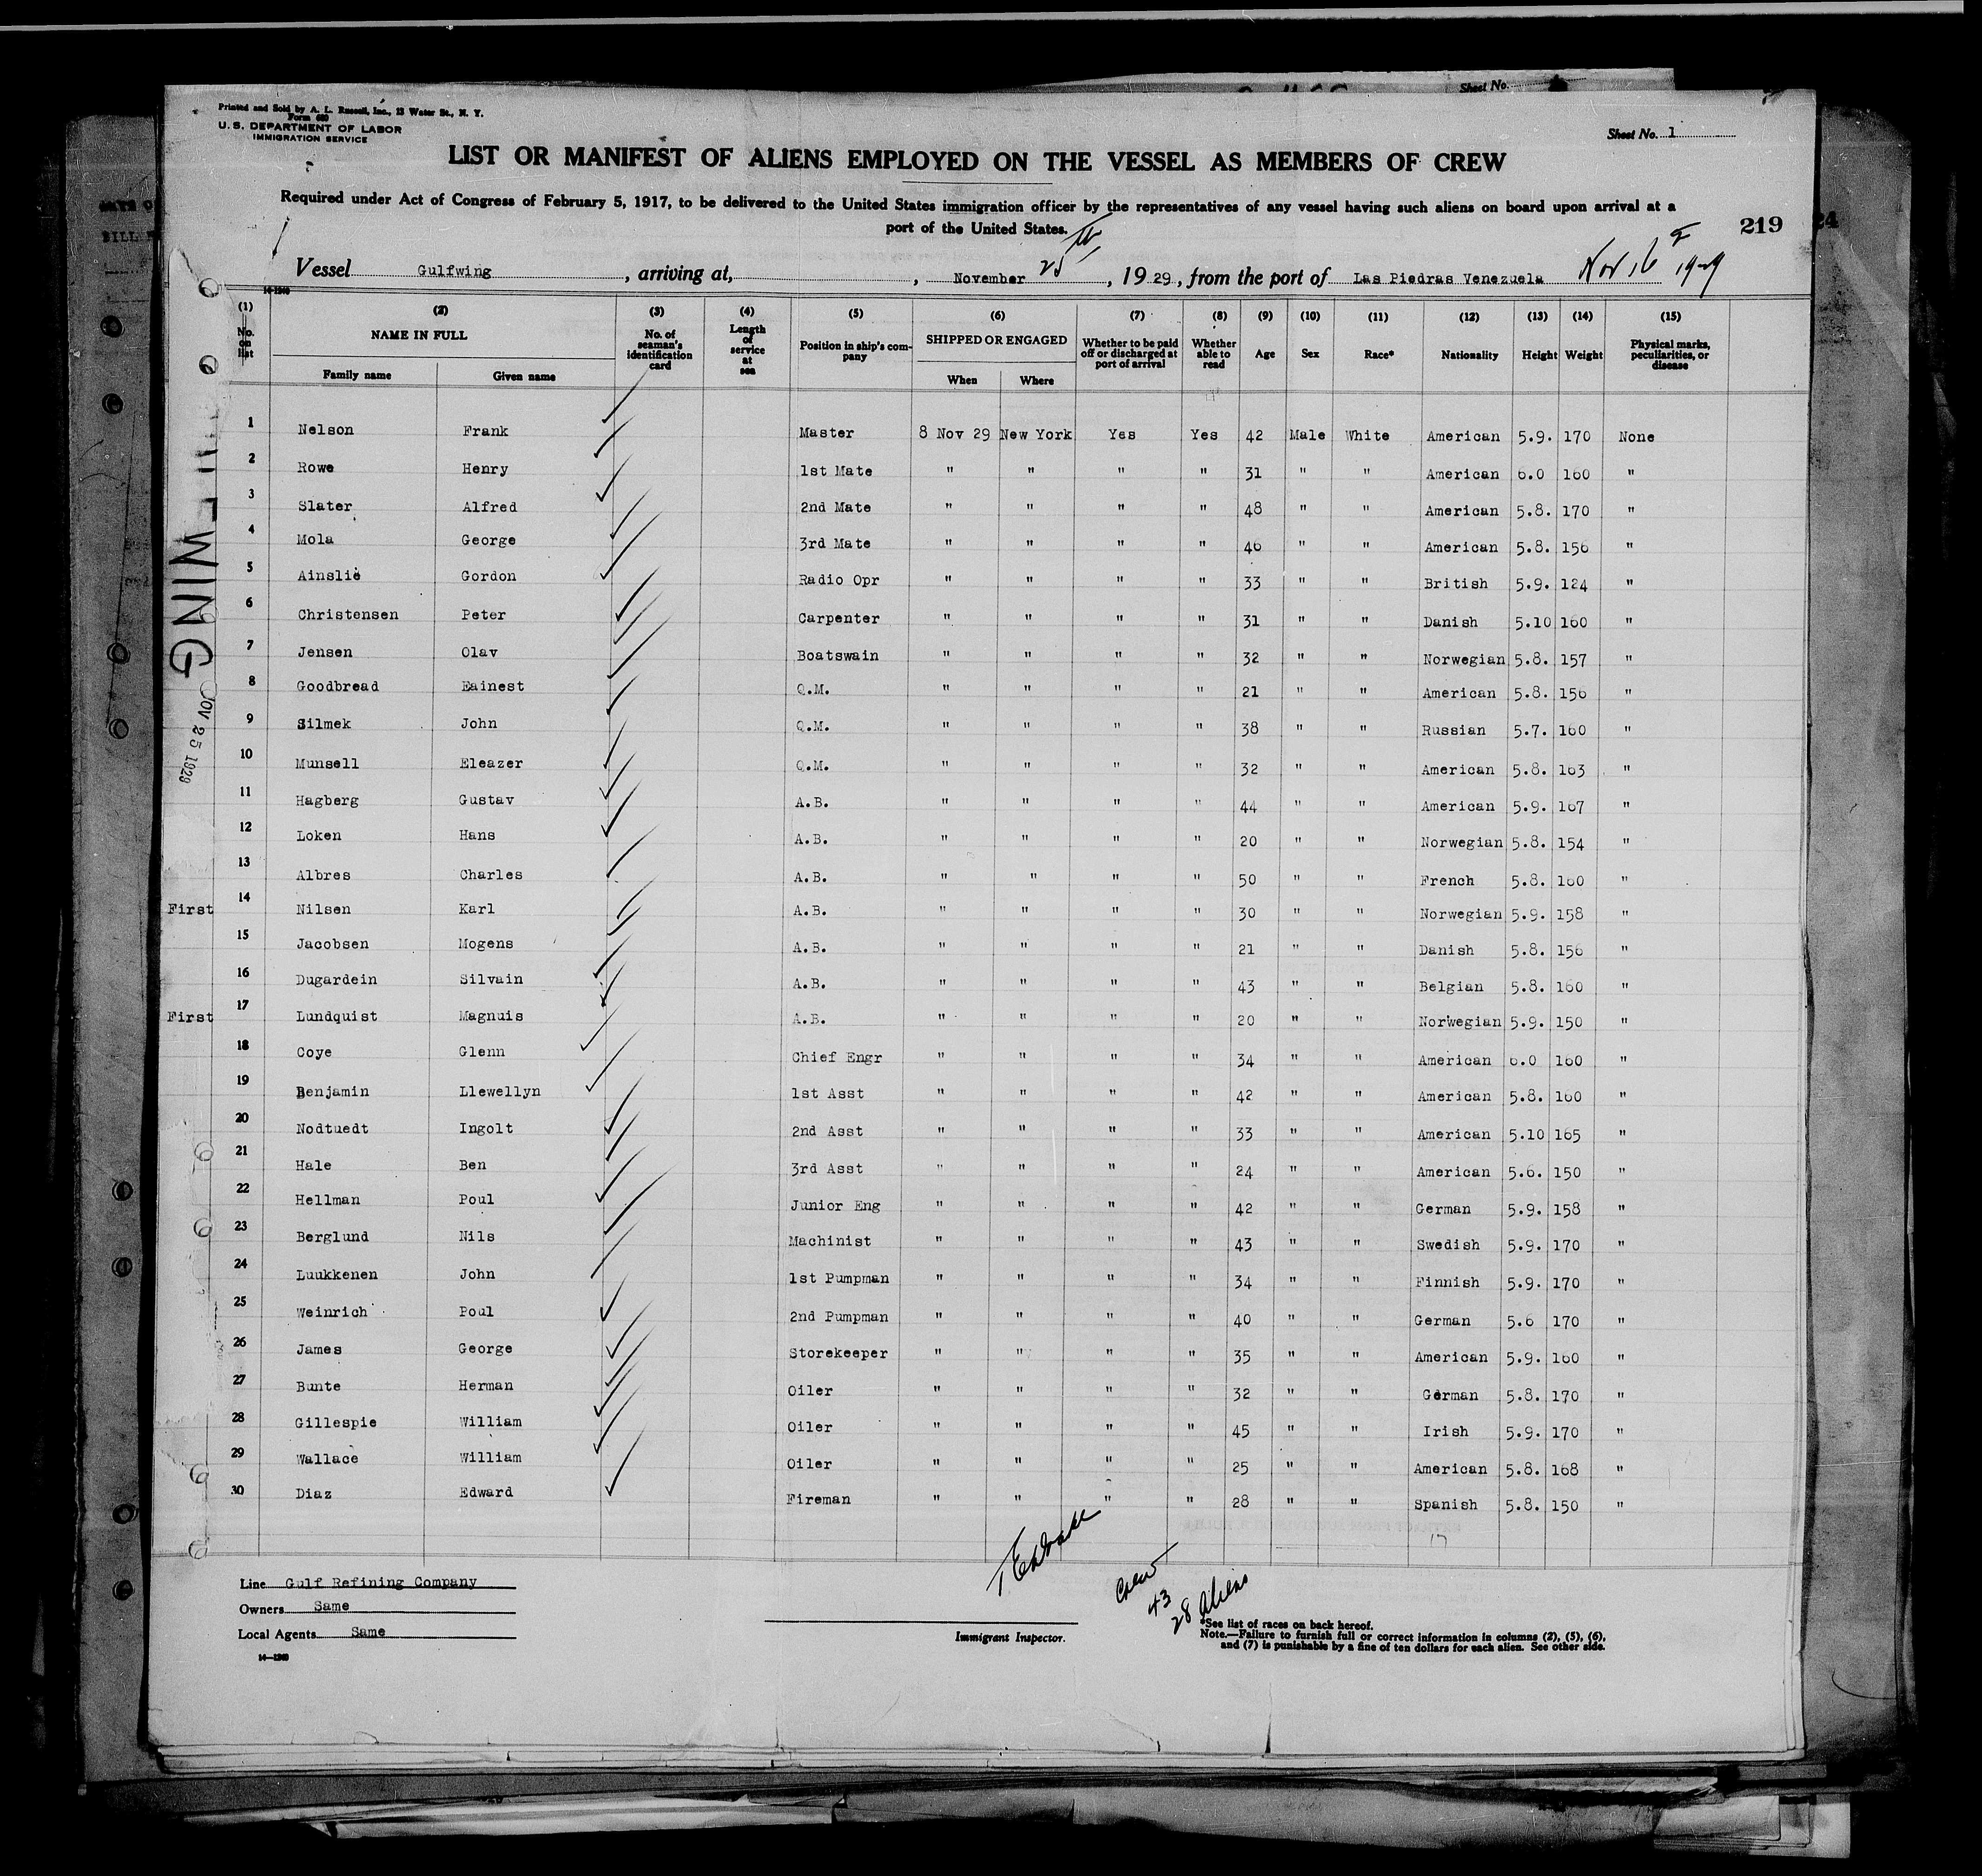 Sheet No.
Printed and Sold by A. L. Russell, Inc., 13 Water St., N. Y.
Form 680
U. S. DEPARTMENT OF LABOR
IMMIGRATION SERVICE
Sheet No. 1
LIST OR MANIFEST OF ALIENS EMPLOYED ON THE VESSEL AS MEMBERS OF CREW
Required under Act of Congress of February 5, 1917, to be delivered to the United States immigration officer by the representatives of any vessel having such aliens on board upon arrival at a
port of the United States.
219
24
Vessel Gulfwing, arriving at, , November 25, 1929, from the port of Las Piedras Venezuela Nov 16 1929
14-1240
(1) (2) (3) (4) (5) (6) (7) (8) (9) (10) (11) (12) (13) (14) (15)
No. on list NAME IN FULL No. of seaman's identification card Length of service at sea Position in ship's company SHIPPED OR ENGAGED Whether to be paid off or discharged at port of arrival Whether able to read Age Sex Race* Nationality Height Weight Physical marks, peculiarities, or disease
Family name Given name When Where
1 Nelson Frank Master 8 Nov 29 New York Yes Yes 42 Male White American 5.9. 170 None
2 Rowe Henry 1st Mate " " " " 31 " " American 6.0 160 "
3 Slater Alfred 2nd Mate " " " " 48 " " American 5.8. 170 "
4 Mola George 3rd Mate " " " " 46 " " American 5.8. 156 "
5 Ainslie Gordon Radio Opr " " " " 33 " " British 5.9. 124 "
6 Christensen Peter Carpenter " " " " 31 " " Danish 5.10 160 "
7 Jensen Olav Boatswain " " " " 32 " " Norwegian 5.8. 157 "
8 Goodbread Eainest Q.M. " " " " 21 " " American 5.8. 156 "
9 Silmek John Q.M. " " " " 38 " " Russian 5.7. 160 "
10 Munsell Eleazer Q.M. " " " " 32 " " American 5.8. 163 "
11 Hagberg Gustav A.B. " " " " 44 " " American 5.9. 167 "
12 Loken Hans A.B. " " " " 20 " " Norwegian 5.8. 154 "
13 Albres Charles A.B. " " " " 50 " " French 5.8. 160 "
First 14 Nilsen Karl A.B. " " " " 30 " " Norwegian 5.9. 158 "
15 Jacobsen Mogens A.B. " " " " 21 " " Danish 5.8. 156 "
16 Dugardein Silvain A.B. " " " " 43 " " Belgian 5.8. 160 "
First 17 Lundquist Magnuis A.B. " " " " 20 " " Norwegian 5.9. 150 "
18 Coye Glenn Chief Engr " " " " 34 " " American 6.0 160 "
19 Benjamin Llewellyn 1st Asst " " " " 42 " " American 5.8. 160 "
20 Nodtuedt Ingolt 2nd Asst " " " " 33 " " American 5.10 165 "
21 Hale Ben 3rd Asst " " " " 24 " " American 5.6. 150 "
22 Hellman Poul Junior Eng " " " " 42 " " German 5.9. 158 "
23 Berglund Nils Machinist " " " " 43 " " Swedish 5.9. 170 "
24 Luukkenen John 1st Pumpman " " " " 34 " " Finnish 5.9. 170 "
25 Weinrich Poul 2nd Pumpman " " " " 40 " " German 5.6 170 "
26 James George Storekeeper " " " " 35 " " American 5.9. 160 "
27 Bunte Herman Oiler " " " " 32 " " German 5.8. 170 "
28 Gillespie William Oiler " " " " 45 " " Irish 5.9. 170 "
29 Wallace William Oiler " " " " 25 " " American 5.8. 168 "
30 Diaz Edward Fireman " " " " 28 " " Spanish 5.8. 150 "
17
WING
NOV 25 1929
Line Gulf Refining Company
Owners Same
Local Agents Same
14-1240
Immigrant Inspector.
Crew
43
28 Aliens
*See list of races on back hereof.
Note.—Failure to furnish full or correct information in columns (2), (5), (6),
and (7) is punishable by a fine of ten dollars for each alien. See other side.